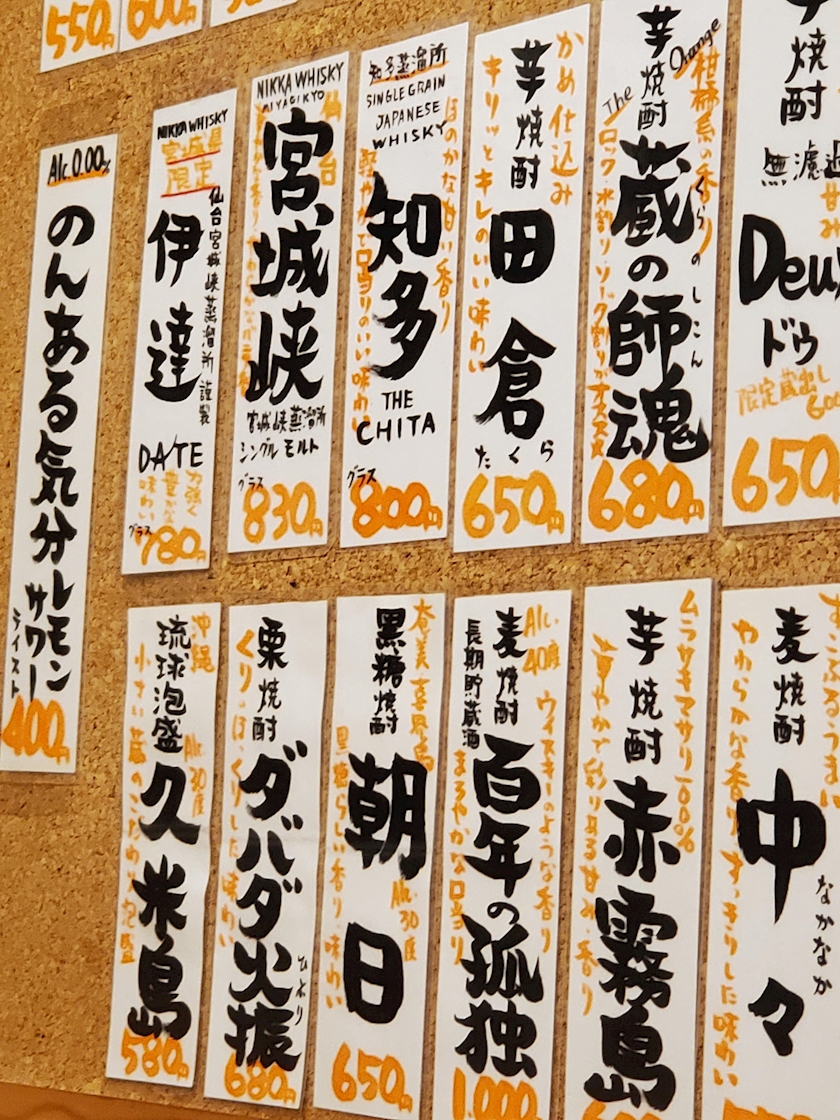 550円
600円
Alc.0.00%
のんある気分
レモンサワー
テイスト
400円
NIKKA WHISKY
宮城県
限定
仙台宮城峡蒸溜所 謹製
伊達
DATE
力強く
豊かな
味わい
グラス
780円
NIKKA WHISKY
MIYAGIKYO
仙台
宮城峡
宮城峡蒸溜所
シングルモルト
グラス
830円
知多蒸溜所
SINGLE GRAIN
JAPANESE
WHISKY
ほのかな甘い香り
知多
軽やかで口当りのいい味わい
THE
CHITA
グラス
800円
かめ仕込み
芋焼酎
キリッとキレのいい味わい
田倉
たくら
650円
The Orange
柑橘系の香り
芋焼酎
蔵の師魂
くらのしこん
ロック・水割り・ソーダ割りがオススメ
680円
芋焼酎
Deux
ドゥ
限定蔵出し
650
沖縄
琉球泡盛
Alc.30度
久米島
小さい蔵のこだわり泡盛
580円
栗焼酎
くりのほっくりした味わい
ダバダ火振
ひぶり
680円
奄美 喜界島
黒糖焼酎
Alc.30度
朝日
黒糖らしい香り、味わい
650円
Alc.40度
麦焼酎
長期貯蔵酒
ウィスキーのような香り
百年の孤独
まろやかな口当り
1,000円
ムラサキマサリ100%
芋焼酎
赤霧島
華やかで彩りある甘み・香り
麦焼酎
中々
なかなか
やわらかな香り、すっきりした味わい